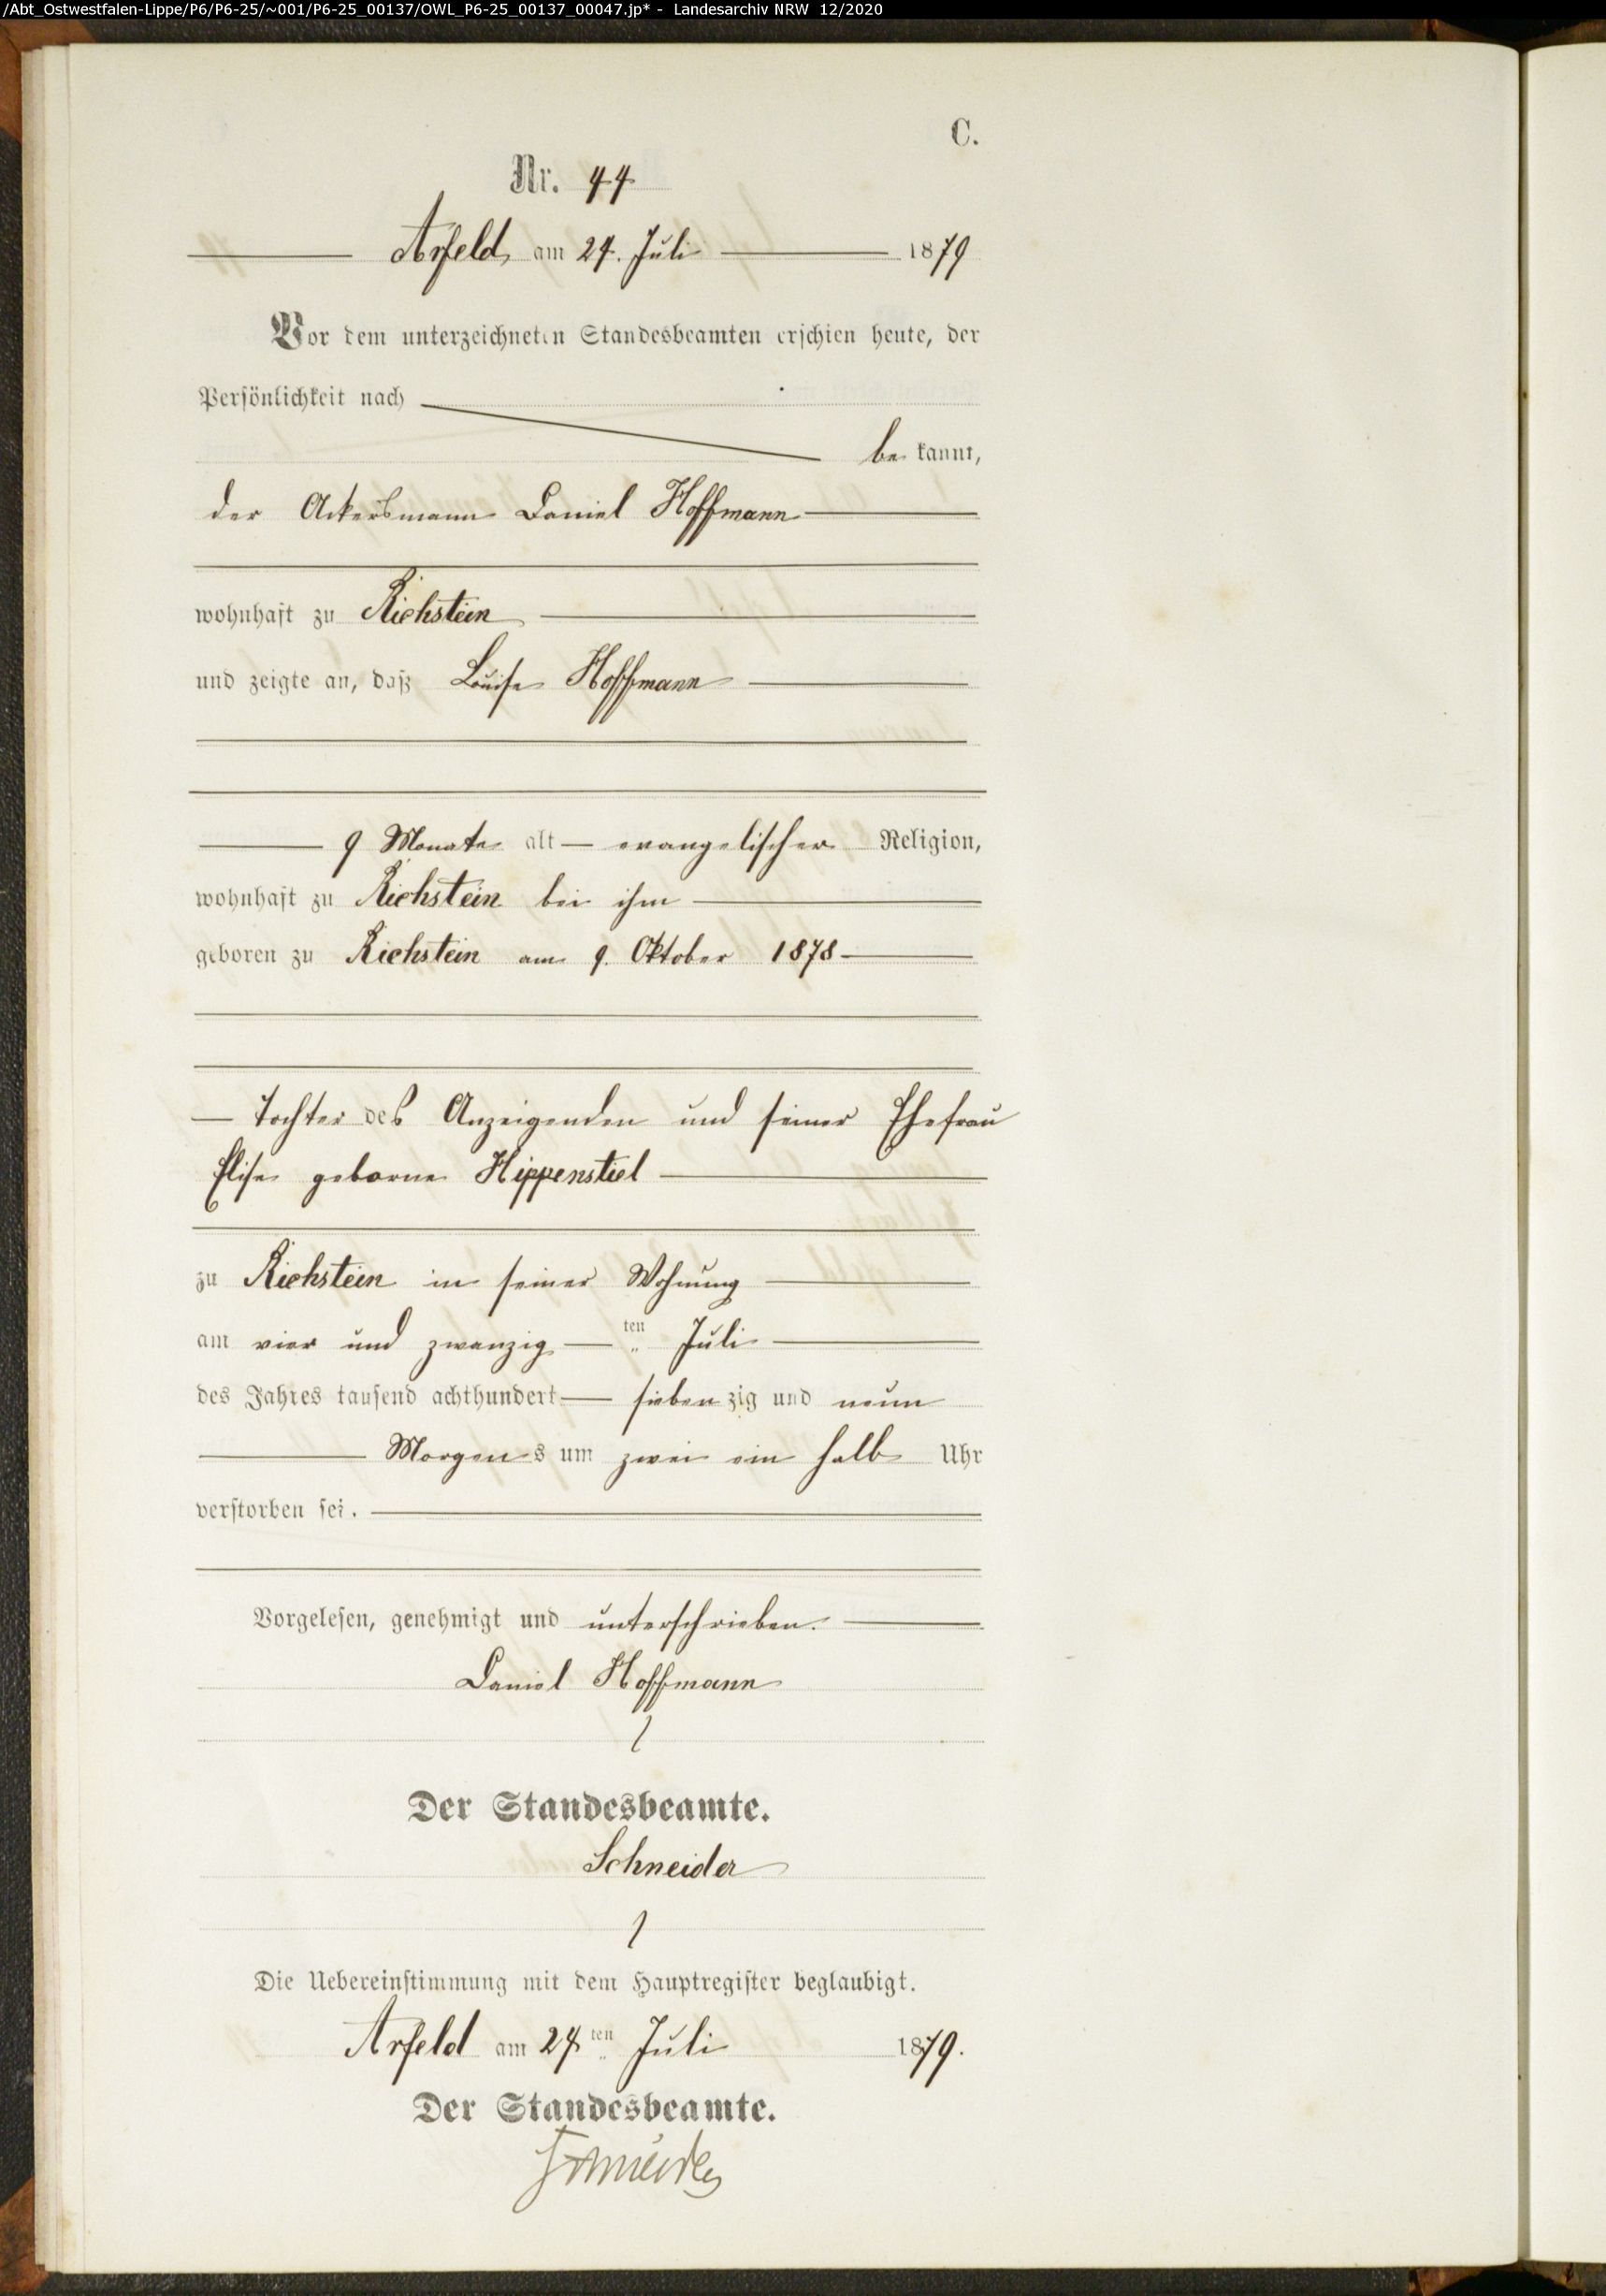 /Abt_Ostwestfalen-Lippe/P6/P6-25/~001/P6-25_00137/OWL_P6-25_00137_00047.jp* - Landesarchiv NRW 12/2020
C.
Nr. 44
Arfeld, am 24. Juli 1879
Vor dem unterzeichneten Standesbeamten erschien heute, der
Persönlichkeit nach
be kannt,
der Ackersmann Daniel Hoffmann
wohnhaft zu Richstein
und zeigte an, daß Louise Hoffmann
9 Monate alt — evangelischer Religion,
wohnhaft zu Richstein bei ihm
geboren zu Richstein am 9. Oktober 1878
— Tochter des Anzeigenden und seiner Ehefrau
Elise geborne Hippenstiel
zu Richstein in seiner Wohnung
am vier und zwanzig — ten Juli
des Jahres tausend achthundert — sieben zig und neun
Morgens um zwei ein halb Uhr
verstorben sei.
Vorgelesen, genehmigt und unterschrieben.
Daniel Hoffmann
Der Standesbeamte.
Schneider
Die Uebereinstimmung mit dem Hauptregister beglaubigt.
Arfeld am 24ten Juli 1879.
Der Standesbeamte.
Schneider